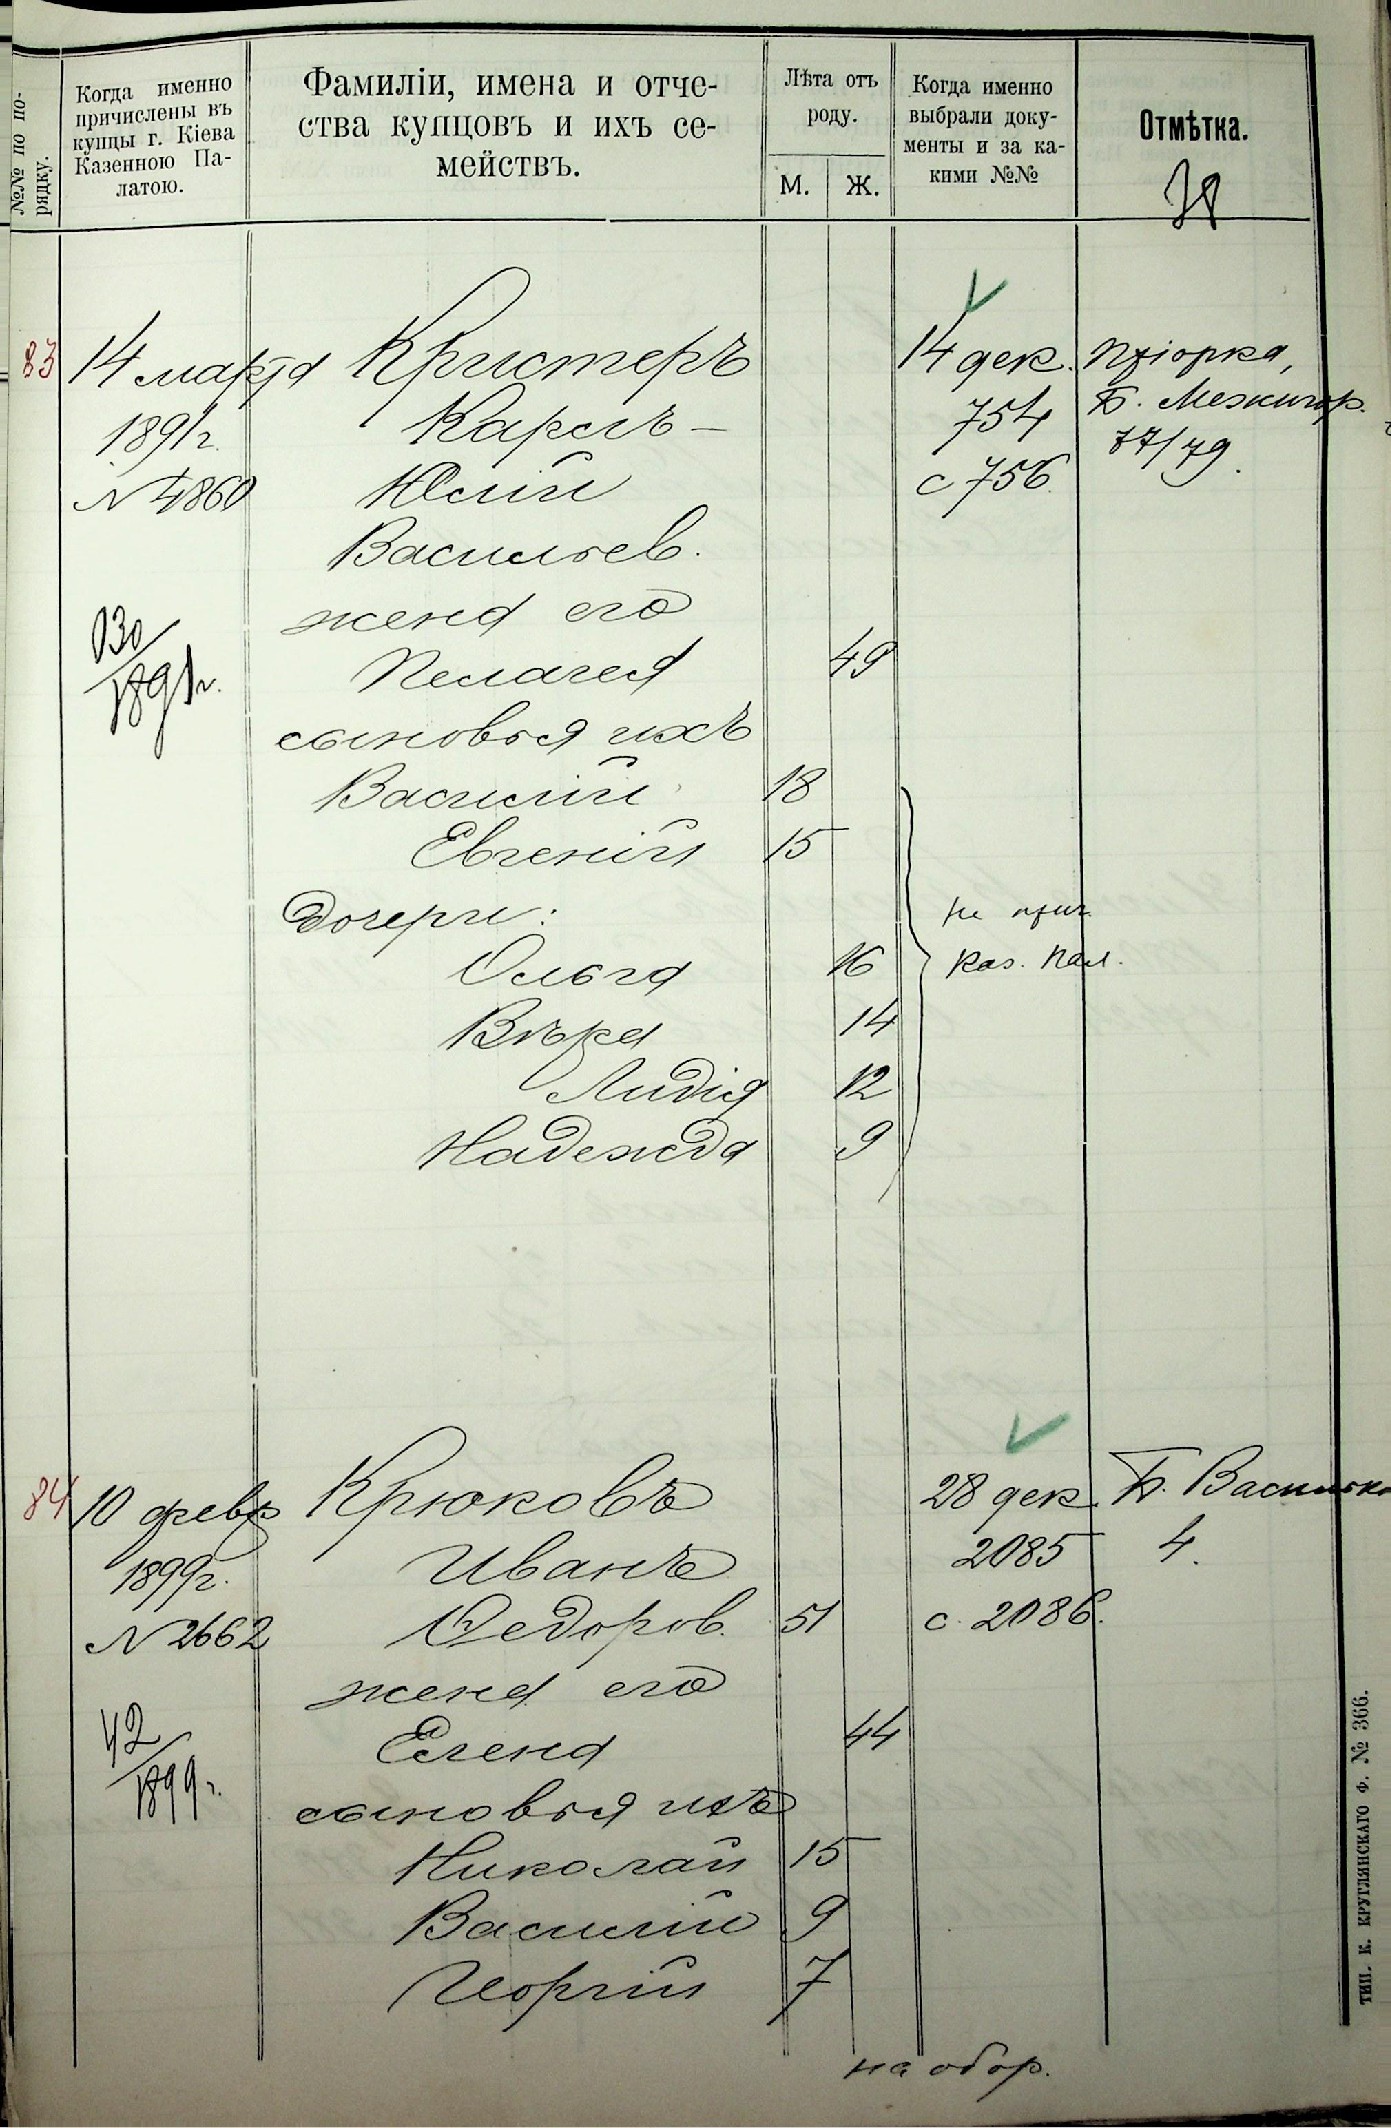 №№ по по-
рядку.
Когда именно
причислены въ
купцы г. Кіева
Казенною Па-
латою.
Фамиліи, имена и отче-
ства купцовъ и ихъ се-
мействъ.
Лѣта отъ
роду.
М. Ж.
Когда именно
выбрали доку-
менты и за ка-
кими №№
Отмѣтка.
83 14 марта Кристеръ 14 дек. Пріорка,
1891 г. Карлъ – 754 Б. Межигор.
N 4860 Юлій с 756 77/79.
Васильев.
жена его
1891 г. Пелагея 49
сыновья ихъ
Василій 18
Евгеній 15
дочери: Не прич.
Ольга 16 Каз. Пал.
Вѣра 14
Лидія 12
Надежда 9
84 10 февр Крюковъ 28 дек. Б. Васильк
1899 г. Иванъ 2085 4.
N 2662 Федоров. 51 с. 2086.
жена его
42 Елена 44
1899 г. сыновья ихъ
Николай 15
Василій 9
Георгій 7
на обор.
ТИП. К. КРУГЛЯНСКАГО Ф. № 366.